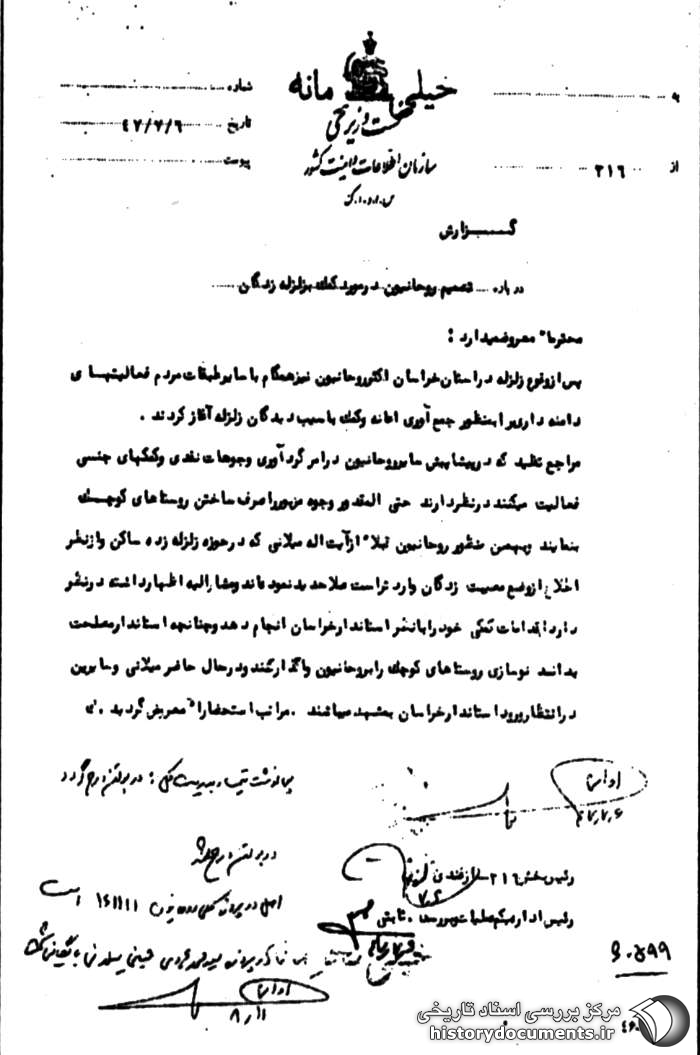 خیلی محرمانه
نخست وزیری
سازمان اطلاعات و امنیت کشور
س.ا.و.ا.ک
به
شماره
تاریخ ۴۷/۷/۶
از ۳۱۶
پیوست
گــزارش
درباره تصمیم روحانیون در مورد کمک بزلزله زدگان
محترما" معروضمیدارد :
پس از وقوع زلزله در استان خراسان اکثر روحانیون نیز همگام با سایر طبقات مردم فعالیتهای
دامنه داری را بمنظور جمع آوری اعانه و کمک به آسیب دیدگان زلزله آغاز کردند .
مراجع تقلید که در پیشاپیش سایر روحانیون در امر گردآوری وجوهات نقدی و کمکهای جنسی
فعالیت میکنند در نظر دارند حتی المقدور وجوه مزبور را صرف ساختن روستاهای کوچک
بنمایند و بهمین منظور روحانیون قبلا" از آیت اله میلانی که در حوزه زلزله زده ساکن و از نظر
اطلاع از وضع مصیبت زدگان وارد تر است صلاحدید نموده اند و مشارالیه اظهار داشته در نظر
دارد اقدامات کمکی خود را با نظر استاندار خراسان انجام دهد و چنانچه استاندار مصلحت
بداند نوسازی روستاهای کوچک را بروحانیون واگذار کنند و در حال حاضر میلانی و سایرین
در انتظار ورود استاندار خراسان بمشهد میباشند . مراتب استحضارا" معروض گردید .
پی نوشت تیمسار مدیریت کل : در بولتن درج گردد
۴۷/۷/۶
در بولتن درج شد
رئیس بخش ۳۱۶
رئیس اداره یکم عملیات و بررسی . ثابتی
اصل در پرونده
۸/۱۱
مرکز بررسی اسناد تاریخی
historydocuments.ir